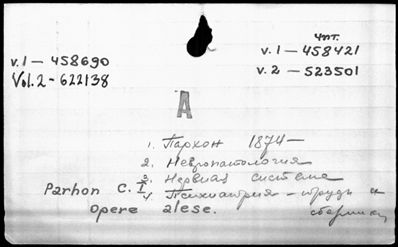 чит.
v. 1 — 458690
v. 1 — 458421
Vol. 2 - 622138
v. 2 — 523501
A
1. Пархон 1874—
2. Невропатология
3. Нервная система
4. Психиатрия — труды и
сборники
Parhon C. I.
Opere alese.